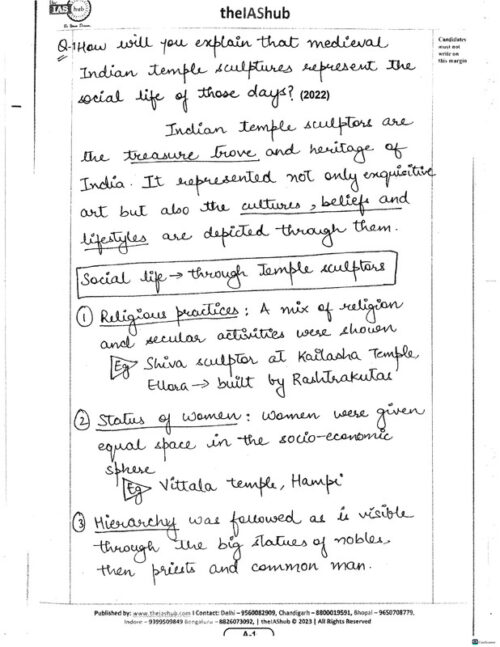 IAS hub
theIAShub
Candidates
must not
write on
this margin
Q.1 How will you explain that medieval
Indian temple sculptures represent the
social life of those days? (2022)
Indian temple sculptors are
the treasure trove and heritage of
India. It represented not only exquisitive
art but also the cultures, beliefs and
lifestyles are depicted through them.
Social life → through Temple sculptors
① Religious practices : A mix of religion
and secular activities were shown
Eg Shiva sculptor at Kailasha Temple,
Ellora → built by Rashtrakutas
② Status of women : women were given
equal space in the socio-economic
sphere
Eg Vittala temple, Hampi
③ Hierarchy was followed as is visible
through the big statues of nobles,
then priests and common man.
Published by: www.theiashub.com I Contact: Delhi – 9560082909, Chandigarh – 8800019591, Bhopal – 9650708779,
Indore – 9399509849 Bengaluru – 8826073092, | theIAShub © 2023 | All Rights Reserved
A-1